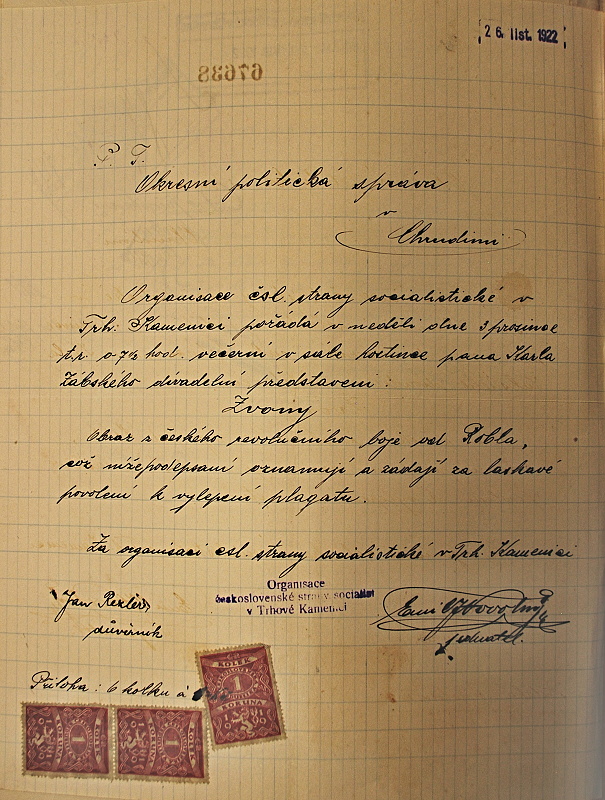 26. list. 1922
67638
P. T.
Okresní politická správa
v
Chrudimi
Organisace čsl. strany socialistické v
Trh. Kamenici pořádá v neděli dne 3 prosince
t.r. o 7½ hod. večerní v sále hostince pana Karla
Zábského divadelní představení:
Zvony
Obraz z českého revolučního boje od Robla,
což nížepodepsaní oznamují a žádají za laskavé
povolení k vylepení plagatu.
Za organisaci čsl. strany socialistické v Trh. Kamenici
Organisace
československé strany socialist
v Trhové Kamenici
Jan Rexler
důvěrník
jednatel.
Příloha: 6 kolku á
KOLEK
1
KORUNA
1
1